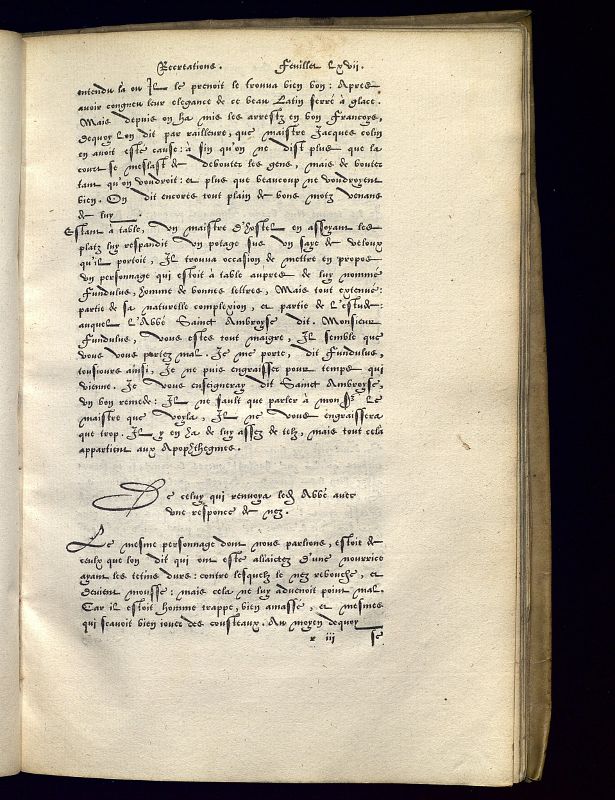 Recreations. Feuillet Lxvii.
entendu là où Il le prenoit le trouva bien bon: Apres
avoir congneu leur elegance de ce beau Latin ferré à glace.
Mais depuis on ha mis les arrestz en bon Francoys,
Dequoy Lon dit par raillerie, que maistre Jacques colin
en avoit esté cause: à fin qu'on ne dist plus que la
court se meslast de debouter les gens, mais de bouter
tant qu'on voudroit: et plus que beaucoup ne voudroyent
bien. On dit encores tout plain de bons motz venans
de luy.
Estant à table, un maistre d'hostel en assoyant les
platz luy respandit un potage sus un saye de veloux
qu'il portoit, Il trouva occasion de mettre en propos
un personnage qui estoit à table aupres de luy nommé
Fundulus, homme de bonnes lettres, Mais tout extenué:
partie de sa naturelle complexion, et partie de l'estude:
auquel l'Abbé Sainct Ambroyse dit. Monsieur
Fundulus, vous estes tout maigre, Il semble que
vous vous portez mal. Je me porte, dit Fundulus,
tousiours ainsi, Je ne puis engraisser pour temps qui
vienne. Je vous enseigneray dit Sainct Ambroyse,
un bon remede: Il ne fault que parler à monsr. Le
maistre que voyla, Il ne vous engraissera
que trop. Il y en ha de luy assez de telz, mais tout cela
appartient aux Apophthegmes.
De celuy qui renvoya ledt Abbé avec
une responce de nez.
Le mesme personnage dont nous parlions, estoit de
ceulx que lon dit qui ont esté allaictez d'une nourrice
ayant les tetins durs: contre lesquelz le nez rebouche, et
devient mousse: mais cela ne luy advenoit point mal.
Car il estoit homme trappe, bien amassé, et mesmes
qui scavoit bien iouer des cousteaux. Au moyen dequoy
r iii se